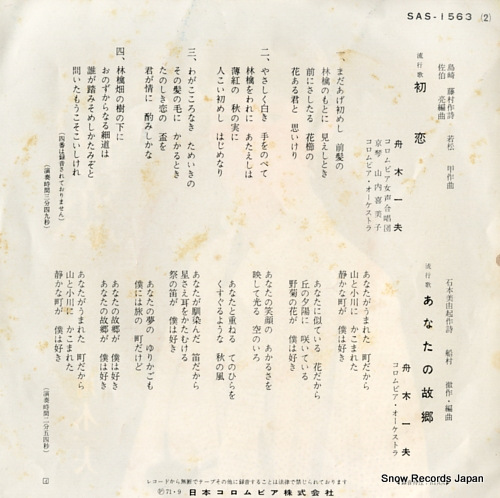 SAS-1563 (2)
島崎 藤村作詩 若松 甲作曲
佐伯 亮編曲
流行歌 初恋
舟木一夫
コロムビア女声合唱団
京琴 山内喜美子
コロムビア・オーケストラ
一、まだあげ初めし 前髪の
林檎のもとに 見えしとき
前にさしたる 花櫛の
花ある君と 思いけり
二、やさしく白き 手をのべて
林檎をわれに あたえしは
薄紅の 秋の実に
人こい初めし はじめなり
三、わがこころなき ためいきの
その髪の毛に かかるとき
たのしき恋の 盃を
君が情に 酌みしかな
四、林檎畑の樹の下に
おのずからなる細道は
誰が踏みそめしかたみぞと
問いたもうこそこいしけれ
(四番は録音されておりません)
(演奏時間三分四九秒)
石本美由起作詩 船村 徹作・編曲
流行歌 あなたの故郷
舟木一夫
コロムビア・オーケストラ
あなたがうまれた 町だから
山と小川に かこまれた
静かな町が 僕は好き
あなたに似ている 花だから
丘の夕陽に 咲いている
野菊の花が 僕は好き
あなたの笑顔の あかるさを
映して光る 空のいろ
あなたと重ねる てのひらを
くすぐるような 秋の風
あなたが馴染んだ 笛だから
星さえ耳をかたむける
祭の笛が 僕は好き
あなたの夢の ゆりかごも
僕には旅の 町だけど
あなたの故郷が 僕は好き
あなたの故郷が 僕は好き
あなたがうまれた 町だから
山と小川に かこまれた
静かな町が 僕は好き
(演奏時間二分五四秒)
レコードから無断でテープその他に録音することは法律で禁じられております
Ⓟ71・9 日本コロムビア株式会社
Snow Records Japan
www.snowrecords.jp